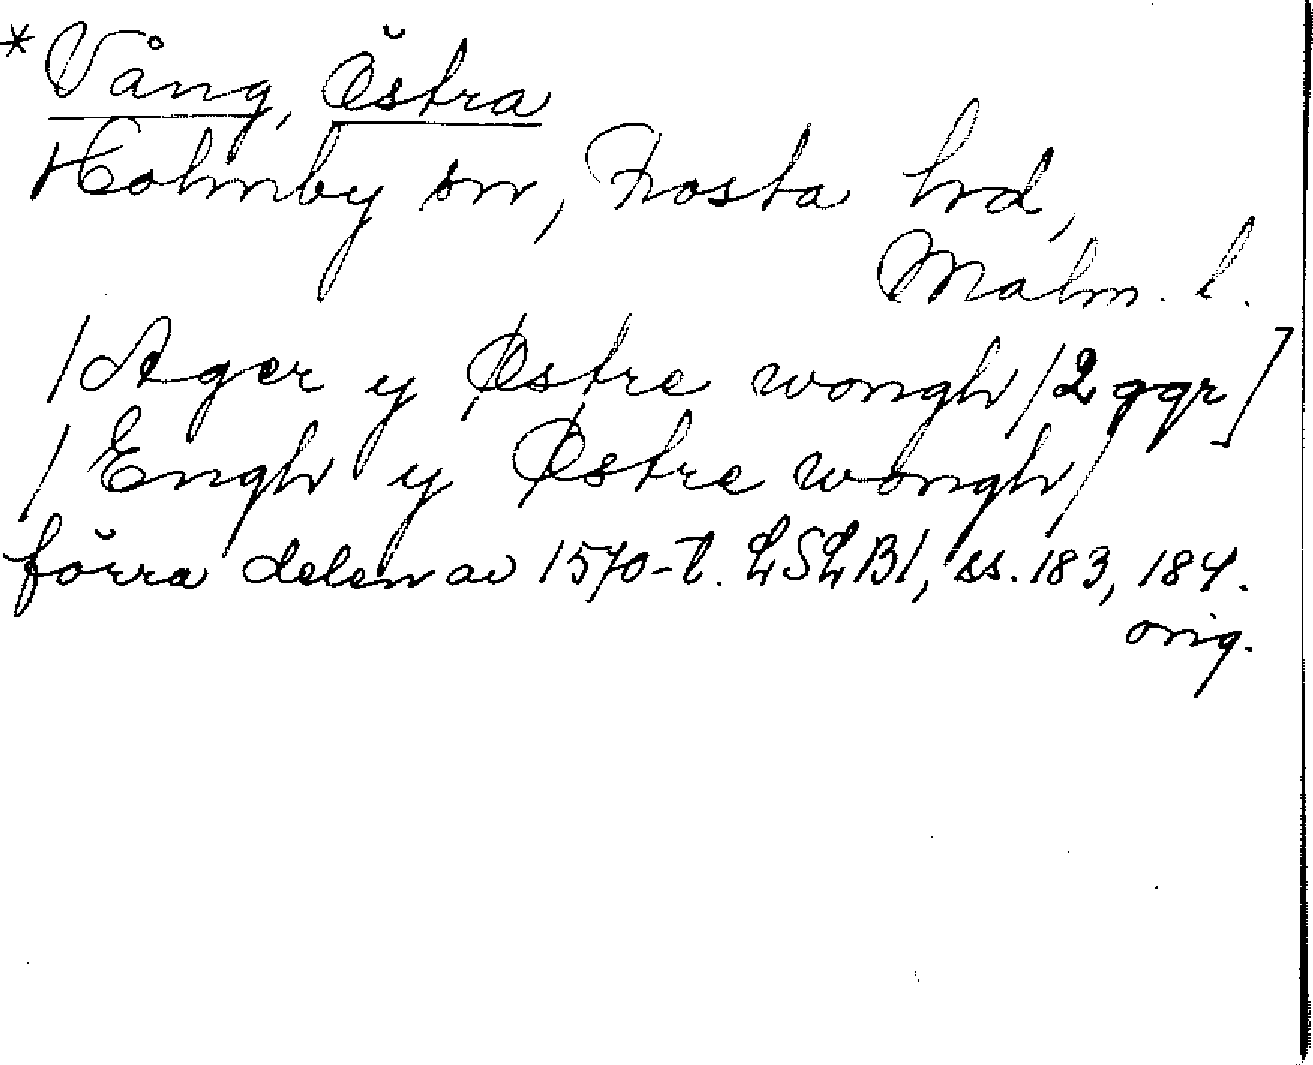 *Vång, Östra
Holmby sn, Frosta hrd,
Malm. l.
/Ager y Østre wongh/2 ggr]
/Engh y Østre wongh/
förra delen av 1570-t. LSLB1, ss. 183, 184.
orig.